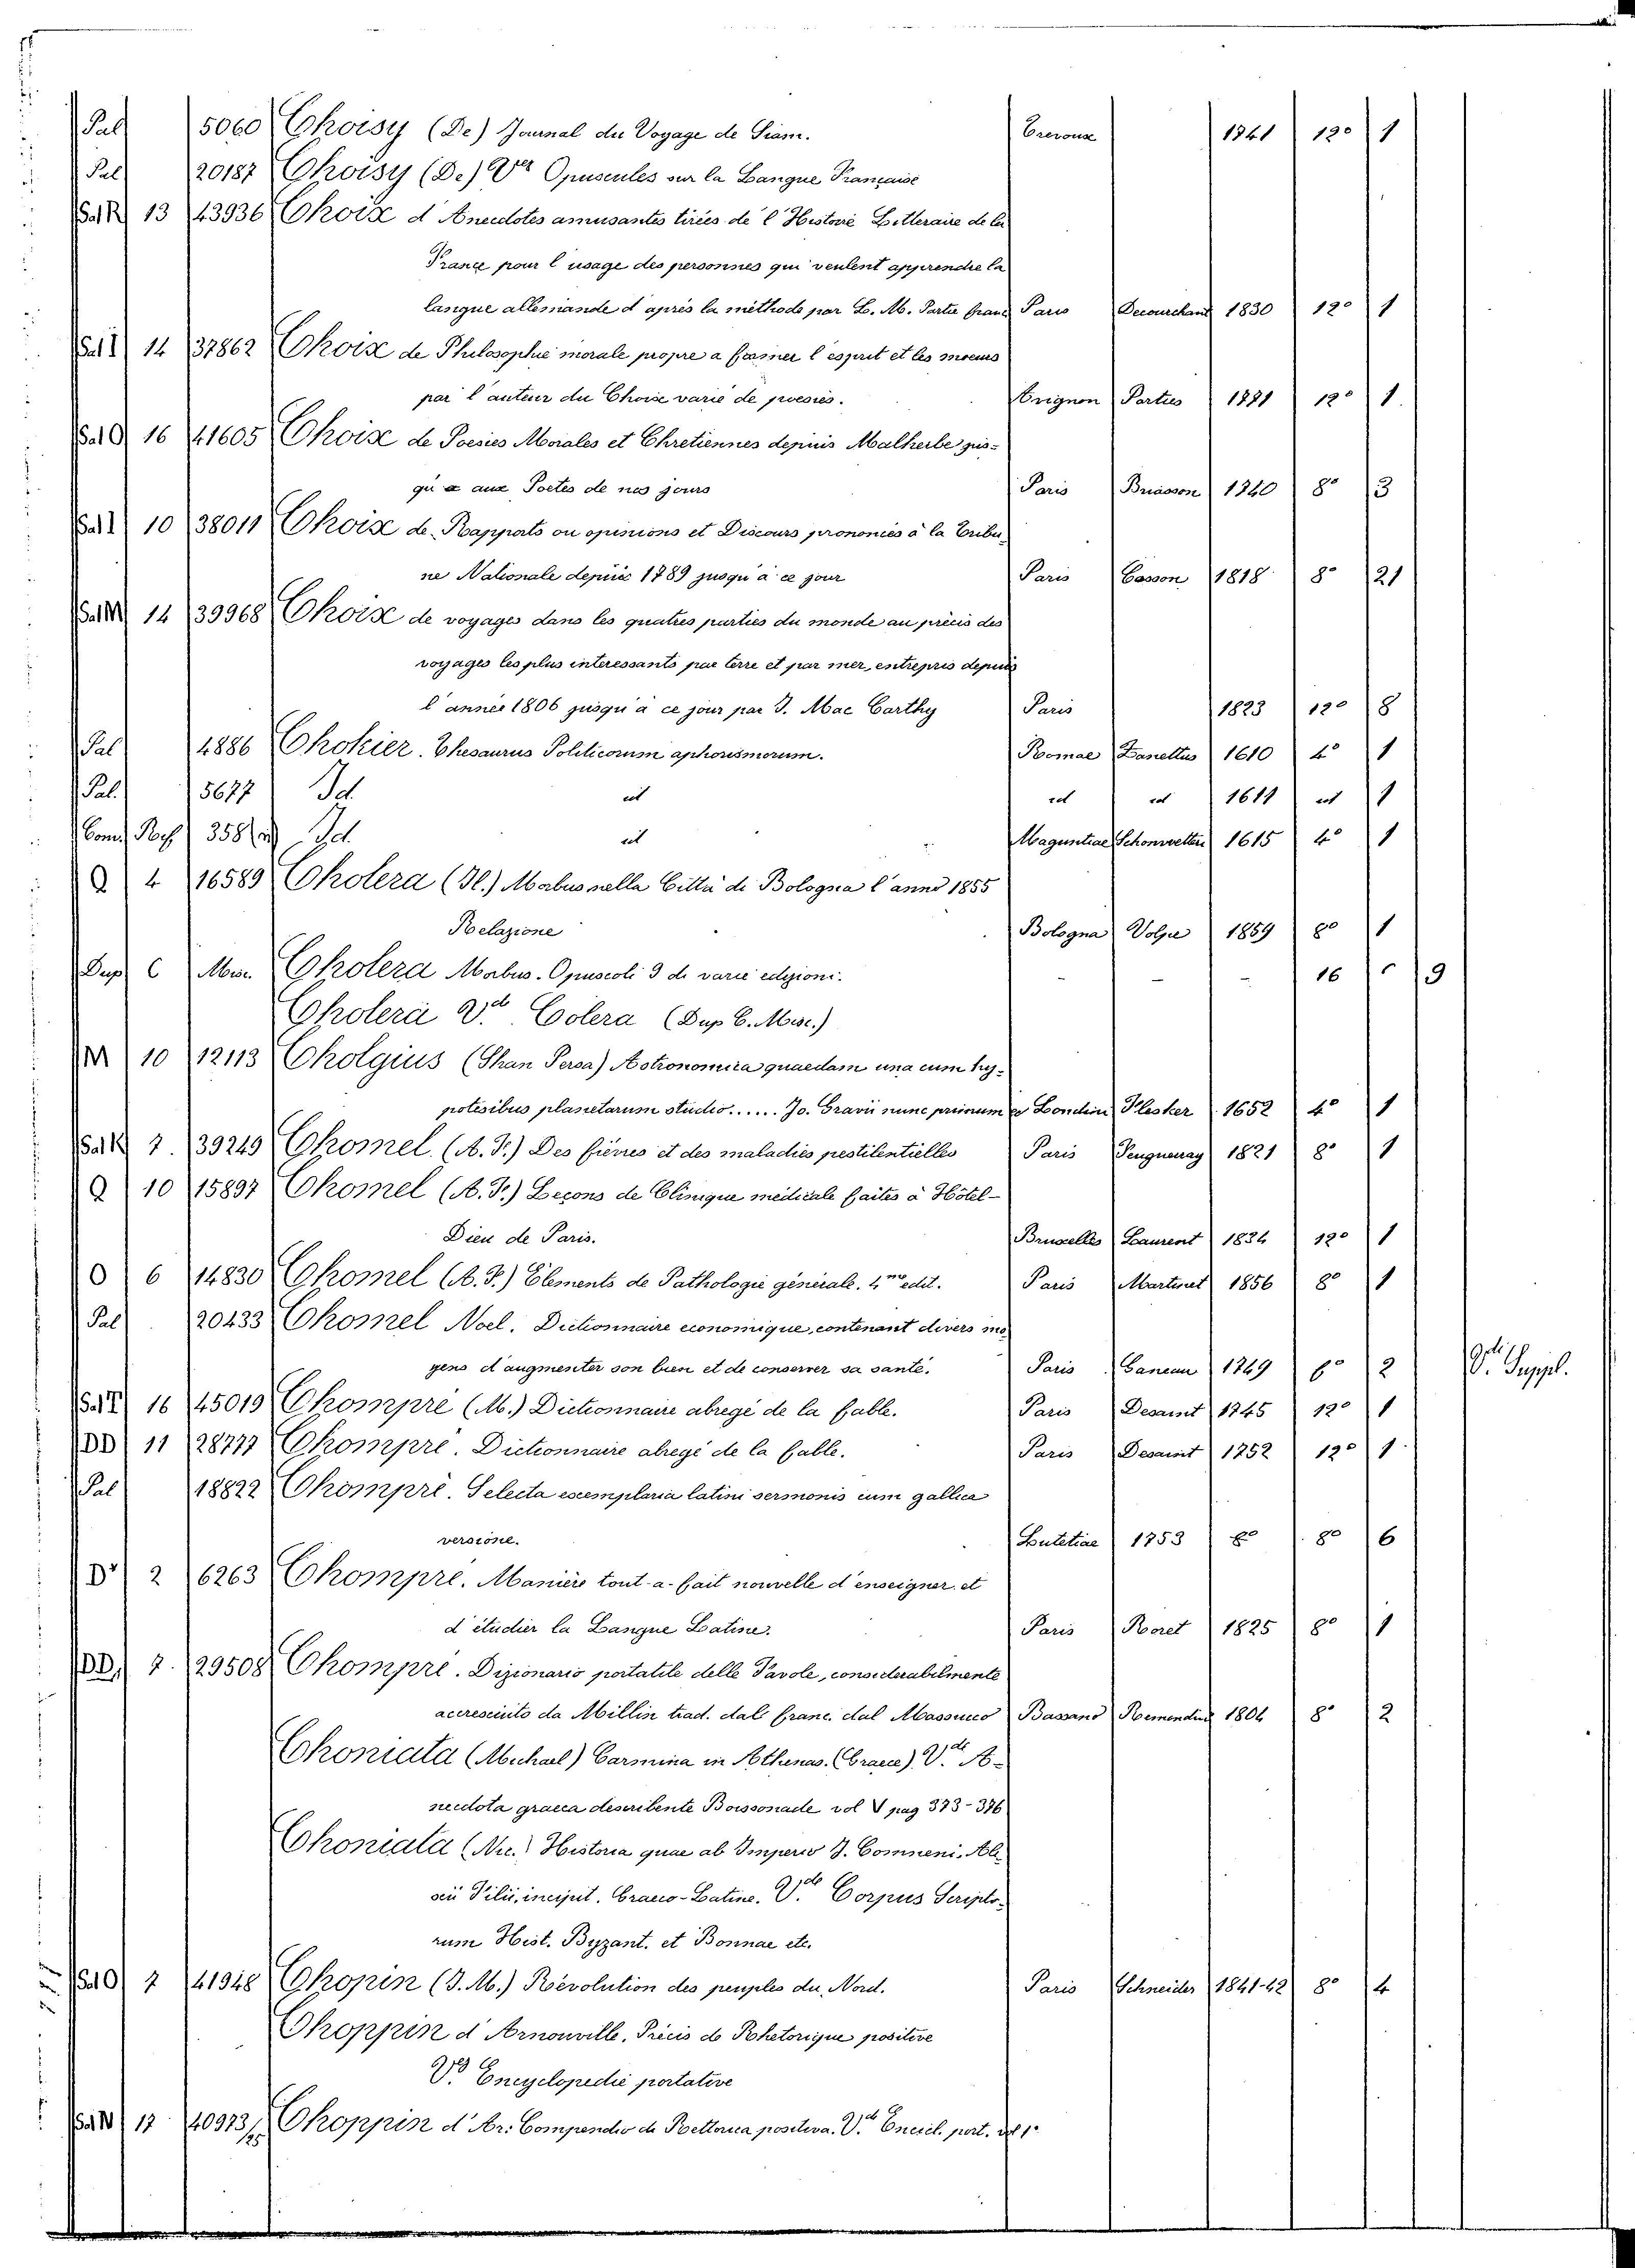 Pal 5060 Choisy (De) Journal du Voyage de Siam. Trevoux 1741 12° 1
Pal 20187 Choisy (De) Vd Opuscules sur la Langue Française
Sal R 13 43936 Choix d'Anecdotes amusantes tirées de l'Histoire Litteraire de la
France pour l'usage des personnes qui veulent apprendre la
langue allemande d'après la méthode par L. M. Partie franc Paris Decourchant 1830 12° 1
Sal I 14 37862 Choix de Philosophie morale propre a former l'esprit et les moeurs
par l'auteur du Choix varié de poesies. Avignon 12° 1
Sal Q 16 41605 Choix de Poesies Morales et Chretiennes depuis Malherbe jus-
qu'a aux Poetes de nos jours Paris Briasson 1740 8° 3
Sal I 10 38011 Choix de Rapports ou opinions et Discours prononcés à la Tribu-
ne Nationale depuis 1789 jusqu'à ce jour Paris 1818 8° 21
Sal M 14 39968 Choix de voyages dans les quatres parties du monde au précis des
voyages les plus interessants par terre et par mer, entrepris depuis
l'année 1806 jusqu'à ce jour par J. Mac Carthy Paris 1823 12° 8
Pal 4886 Chokier. Thesaurus Politicorum aphorismorum. Romae Zanettus 1610 4° 1
Pal. 5677 Id. id id id 1611 id 1
358 Id. id Maguntiae Schonwetter 1615 4° 1
Q 4 16589 Cholera (Il.) Morbus nella Città di Bologna l'anno 1855
Relazione Bologna Volpe 1859 8° 1
Dup C Misc. Cholera Morbus. Opuscoli 9 di varie edizioni. - - - 16 9
Cholera Vd. Colera (Dup C. Misc.)
M 10 12113 Cholgius (Shan Persa) Astronomica quaedam una cum hy-
potesibus planetarum studio...... Jo. Gravii nunc primum Londini Flesher 1652 4° 1
Sal K 7. 39249 Chomel. (A. F.) Des fièvres et des maladies pestilentielles Paris 1821 8° 1
Q 10 15897 Chomel (A. F.) Leçons de Clinique médicale faites à Hôtel-
Dieu de Paris. Bruxelles Laurent 1834 12° 1
O 6 14830 Chomel (A. F.) Elements de Pathologie générale. 4me edit. Paris Martinet 1856 8° 1
Pal 20433 Chomel Noel. Dictionnaire economique, contenant divers mo
yens d'augmenter son bien et de conserver sa santé. Paris Ganeau 2 Vdi Suppl.
Sal T 16 45019 Chompré (M.) Dictionnaire abregé de la fable. Paris Desaint 1745 12° 1
DD 11 28777 Chompré. Dictionnaire abregé de la fable. Paris Desaint 1752 12° 1
Pal 18822 Chompré. Selecta exemplaria latini sermonis cum gallica
versione. Lutetiae 1753 8° 8° 6
D' 2 6263 Chompré. Manière tout-a-fait nouvelle d'enseigner et
d'étudier la Langue Latine. Paris Roret 1825 8° 1
DD, 7. 29508 Chompré. Dizionario portatile delle Favole, considerabilmente
accresciuto da Millin trad. dal franc. dal Massucco Bassano Remondini 1804 8° 2
Choniata (Michael) Carmina in Athenas. (Graece). Vde A-
necdota graeca describente Boissonade vol V pag 373-376
Choniata (Nic.) Historia quae ab Imperio J. Comneni. Ale-
xii Filii, incipit. Graeco-Latine. Vde Corpus Scripto-
rum Hist. Byzant. et Bonnae etc.
Sal O 7 41948 Chopin (J. M.) Révolution des peuples du Nord. Paris Schneider 1841-42 8° 4
Choppin d'Arnouville. Précis de Rhetorique positive
Vd. Encyclopedie portative
Sal N 17 40973/25 Choppin d'Ar. Compendio di Rettorica positiva. Vd. Encicl. port. vol 1°